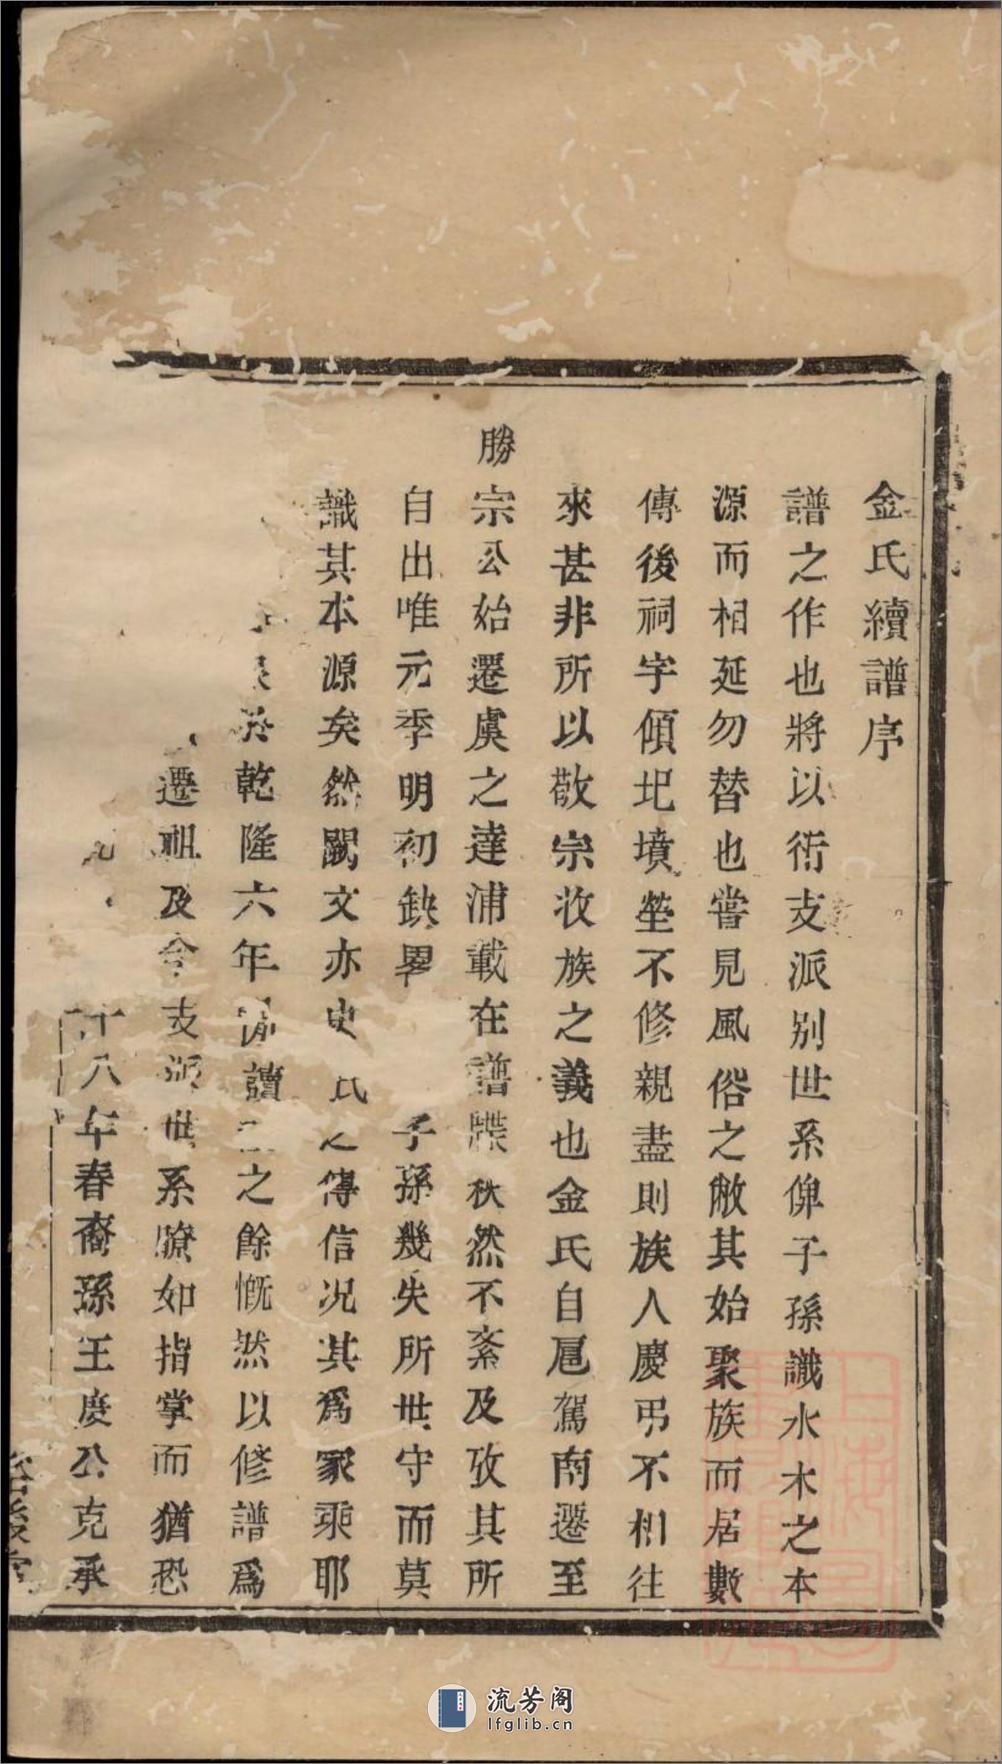 金氏續譜序
譜之作也將以衍支派别世系俾子孫識水木之本
源而相延勿替也嘗見風俗之敝其始聚族而居數
傳後祠宇傾圯墳塋不修親盡則族人慶弔不相往
來甚非所以敬宗收族之義也金氏自扈駕南遷至
勝宗公始遷虞之達浦載在譜牒秩然不紊及攷其所
自出唯元季明初缺畧子孫幾失所世守而莫
識其本源矣然闕文亦史氏之傳信况其為家乘耶
乾隆六年讀之餘慨然以修譜爲
遷祖及今支派世系瞭如指掌而猶恐
十八年春裔孫王度公克承
流芳阁
lfglib.cn